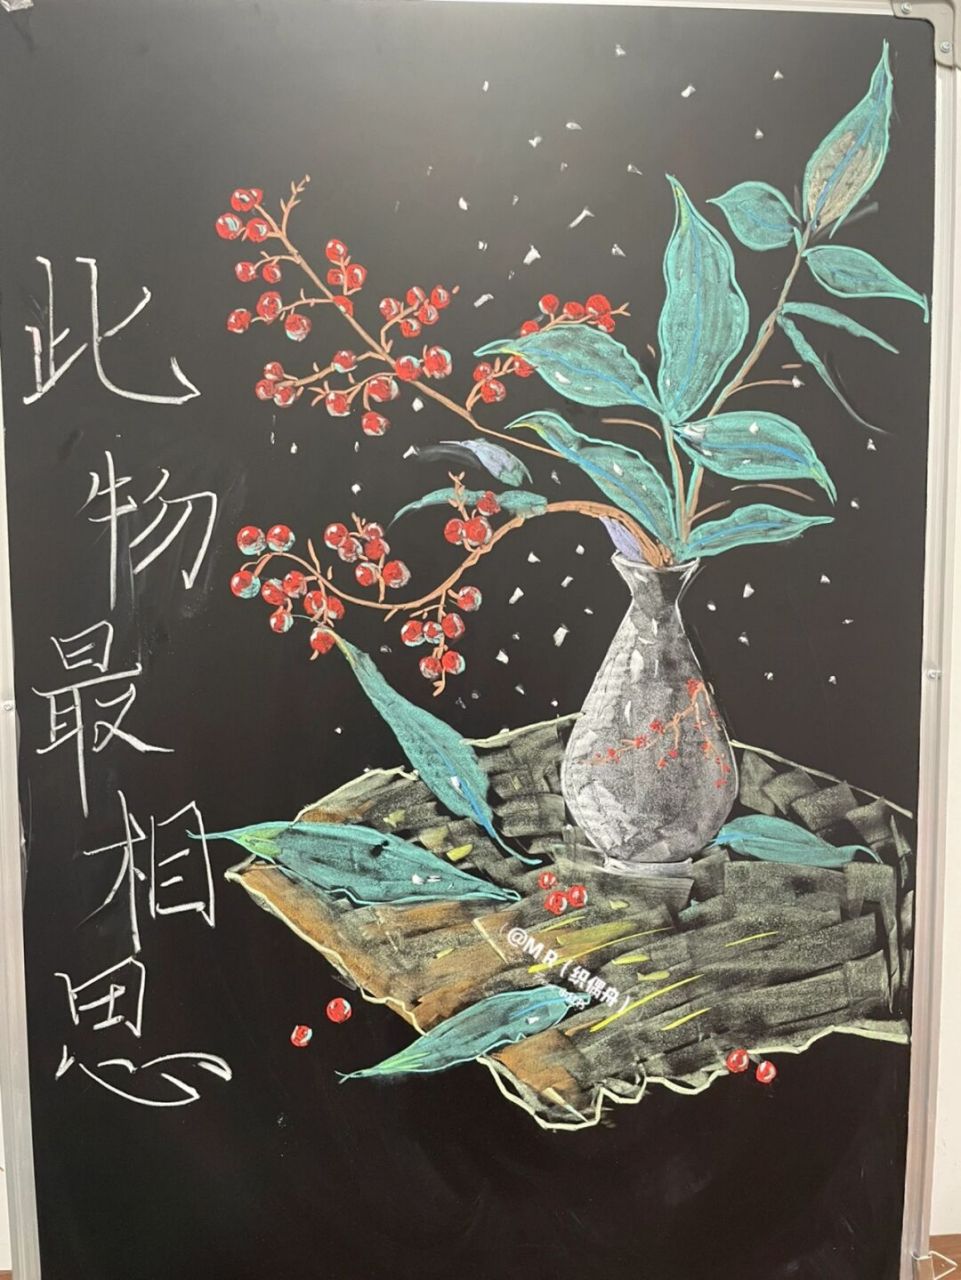 此物最相思
@M R（织偶舟）